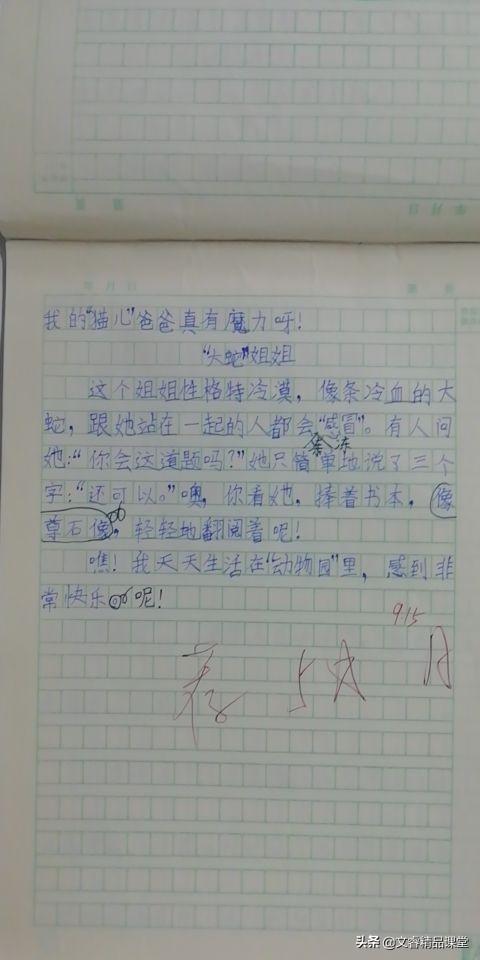 年 月 日
我的“猫儿”爸爸真有魔力呀！
“大蛇”姐姐
这个姐姐性格特冷漠，像条冷血的大
蛇，跟她站在一起的人都会“感冒”。有人问
她：“你会这道题吗？”她只简单地说了三个
字：“还可以。”噢，你看她，捧着书本，像
尊石像，轻轻地翻阅着呢！
瞧！我天天生活在“动物园”里，感到非
常快乐呢！
9.15
头条@文睿精品课堂